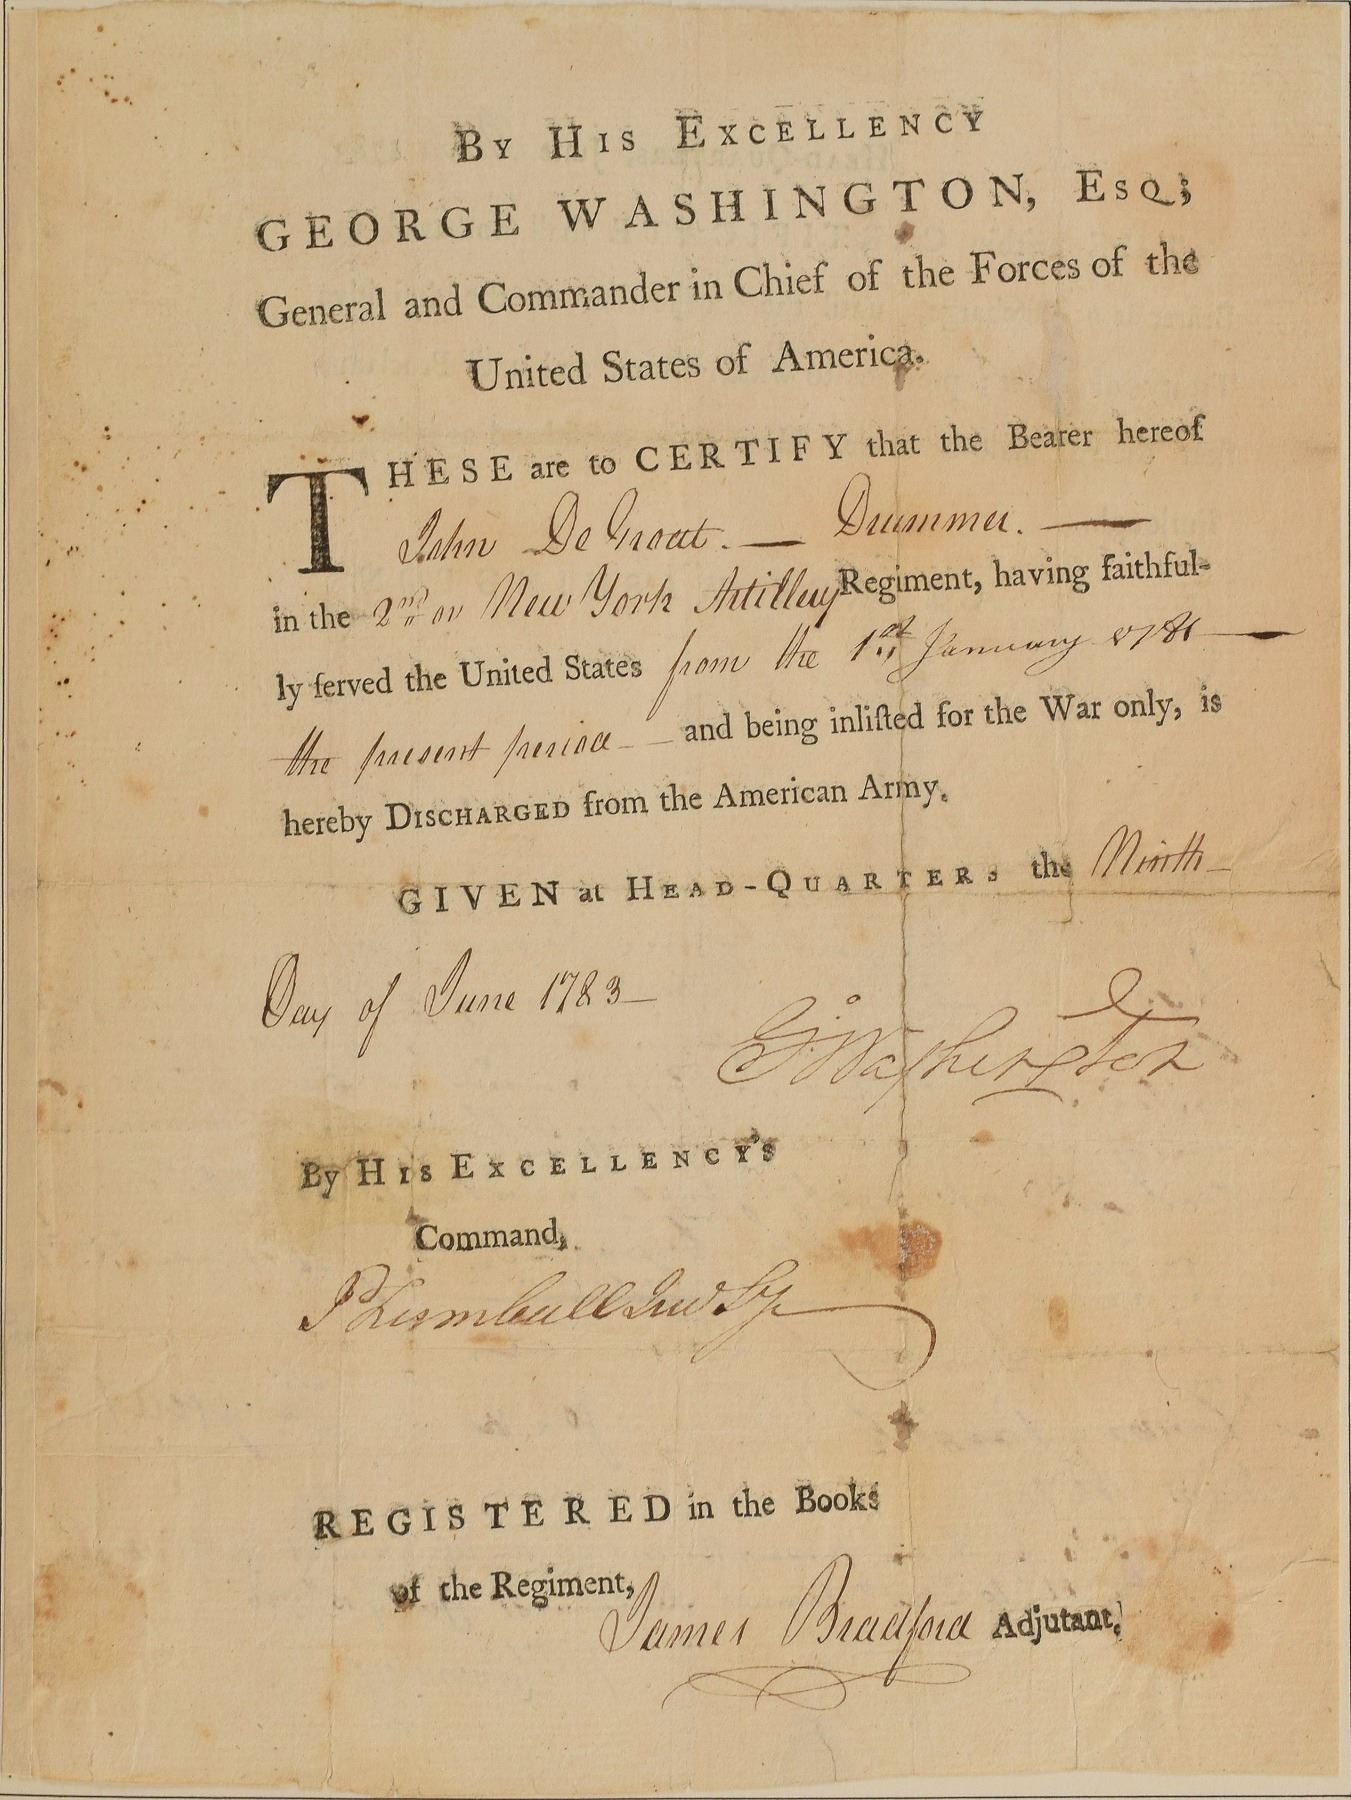 By His Excellency
GEORGE WASHINGTON, Esq;
General and Commander in Chief of the Forces of the
United States of America.
THESE are to CERTIFY that the Bearer hereof
John DeGroat. — Drummer. —
in the 2nd or New York Artillery Regiment, having faithful-
ly ſerved the United States from the 1st January 1781 —
the present period — and being inliſted for the War only, is
hereby Discharged from the American Army.
GIVEN at Head-Quarters the Ninth —
Day of June 1783 —
G:Washington
By His Excellency's
Command,
J Trumbull Jun Sy
REGISTERED in the Books
of the Regiment,
James Bradford Adjutant,